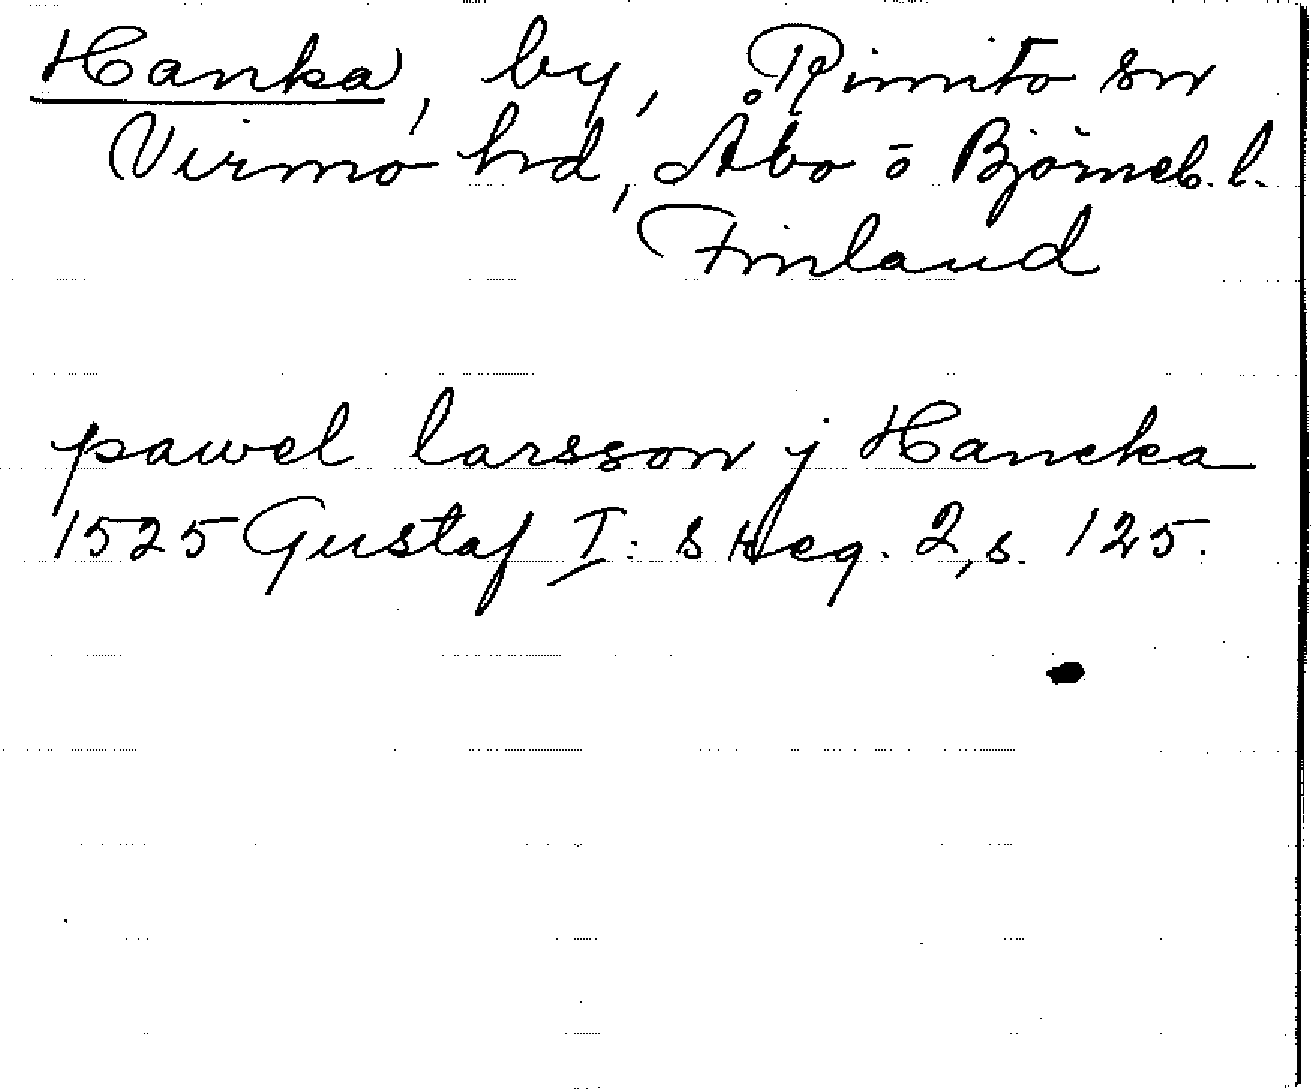 Hanka, by, Rimito sn
Virmo hd, Åbo o Björneb. l.
Finland
pawel larsson j Hancka
1525 Gustaf I: s reg. 2, s. 125.